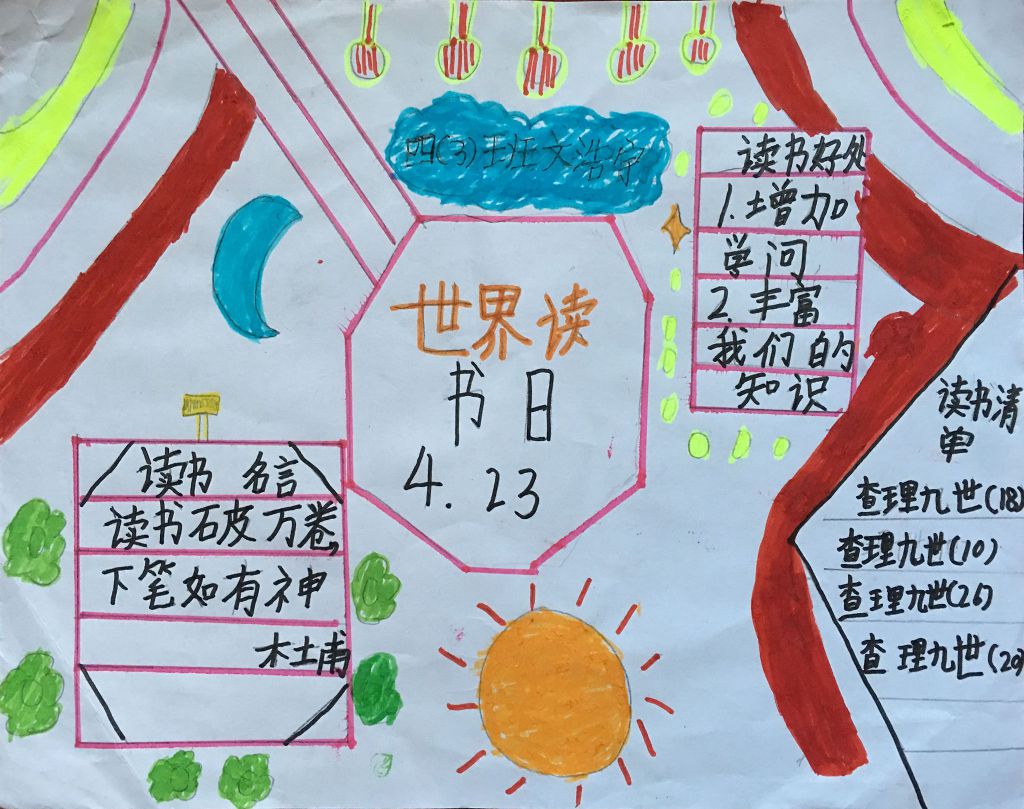 四(3)王班文浩宇
世界读
书日
4.23
读书好处
1.增加
学问
2.丰富
我们的
知识
读书名言
读书破万卷,
下笔如有神
杜甫
读书清
单
查理九世(18)
查理九世(10)
查理九世(26)
查理九世(20)